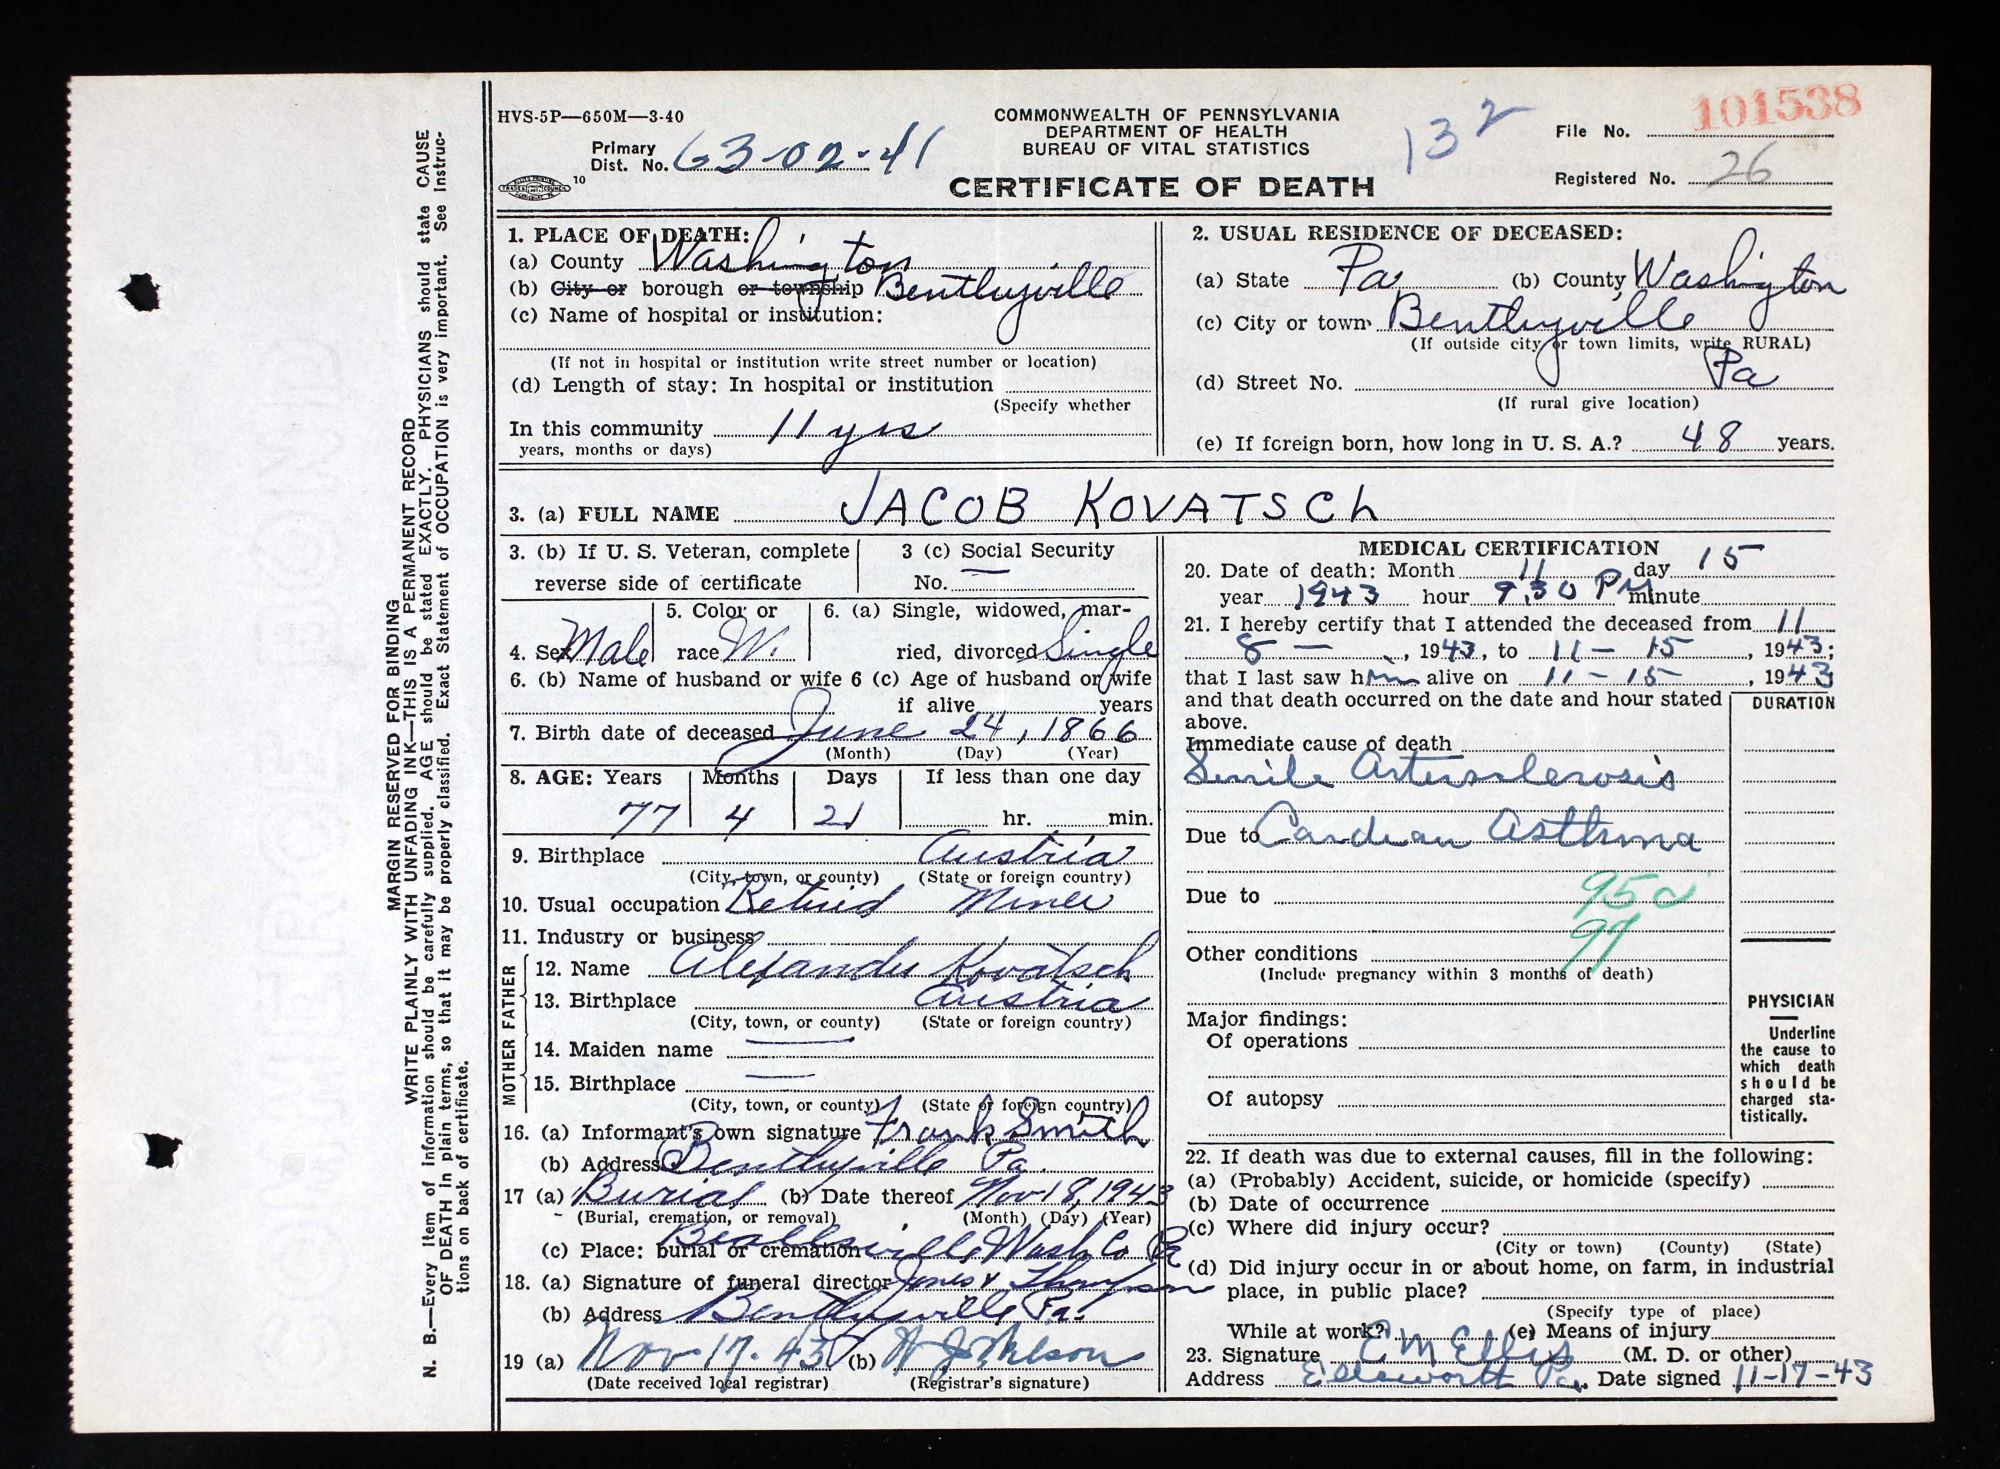 HVS-5P—650M—3-40
COMMONWEALTH OF PENNSYLVANIA
DEPARTMENT OF HEALTH
BUREAU OF VITAL STATISTICS
CERTIFICATE OF DEATH
132
Primary
Dist. No. 63-02-41
10
File No. 101538
Registered No. 26
1. PLACE OF DEATH:
(a) County Washington
(b) City or borough or township Bentleyville
(c) Name of hospital or institution:
(If not in hospital or institution write street number or location)
(d) Length of stay: In hospital or institution
(Specify whether
In this community 11 yrs
years, months or days)
2. USUAL RESIDENCE OF DECEASED:
(a) State Pa (b) County Washington
(c) City or town Bentleyville
(If outside city or town limits, write RURAL)
(d) Street No. Pa
(If rural give location)
(e) If foreign born, how long in U. S. A.? 48 years.
3. (a) FULL NAME JACOB KOVATSCh
3. (b) If U. S. Veteran, complete
reverse side of certificate
3 (c) Social Security
No. —
4. Sex Male
5. Color or
race W.
6. (a) Single, widowed, mar-
ried, divorced Single
6. (b) Name of husband or wife 6 (c) Age of husband or wife
if alive years
7. Birth date of deceased June 24, 1866
(Month) (Day) (Year)
8. AGE: Years Months Days If less than one day
77 4 21 hr. min.
9. Birthplace Austria
(City, town, or county) (State or foreign country)
10. Usual occupation Retired Miner
11. Industry or business
FATHER
12. Name Alexander Kovatsch
13. Birthplace Austria
(City, town, or county) (State or foreign country)
MOTHER
14. Maiden name —
15. Birthplace —
(City, town, or county) (State or foreign country)
16. (a) Informant's own signature Frank Smith
(b) Address Bentleyville Pa
17 (a) Burial (b) Date thereof Nov 18, 1943
(Burial, cremation, or removal) (Month) (Day) (Year)
(c) Place: burial or cremation Beallsville, Wash Co Pa
18. (a) Signature of funeral director Jones & Thompson
(b) Address Bentleyville Pa.
19 (a) Nov-17-43 (b)
(Date received local registrar) (Registrar's signature)
MEDICAL CERTIFICATION
20. Date of death: Month 11 day 15
year 1943 hour 9.30 PM minute
21. I hereby certify that I attended the deceased from 11
8 —, 1943, to 11 — 15, 1943;
that I last saw him alive on 11 — 15, 1943
and that death occurred on the date and hour stated
above.
DURATION
Immediate cause of death
Senile Arterosclerosis
Due to Cardiac Asthma
Due to
95c
97
Other conditions
(Include pregnancy within 3 months of death)
Major findings:
Of operations
Of autopsy
PHYSICIAN
Underline
the cause to
which death
should be
charged sta-
tistically.
22. If death was due to external causes, fill in the following:
(a) (Probably) Accident, suicide, or homicide (specify)
(b) Date of occurrence
(c) Where did injury occur?
(City or town) (County) (State)
(d) Did injury occur in or about home, on farm, in industrial
place, in public place?
(Specify type of place)
While at work? (e) Means of injury
23. Signature E M Ellis (M. D. or other)
Address Ellsworth Pa. Date signed 11-17-43
MARGIN RESERVED FOR BINDING
WRITE PLAINLY WITH UNFADING INK—THIS IS A PERMANENT RECORD
N. B.—Every item of information should be carefully supplied. AGE should be stated EXACTLY. PHYSICIANS should state CAUSE
OF DEATH in plain terms, so that it may be properly classified. Exact Statement of OCCUPATION is very important. See Instruc-
tions on back of certificate.